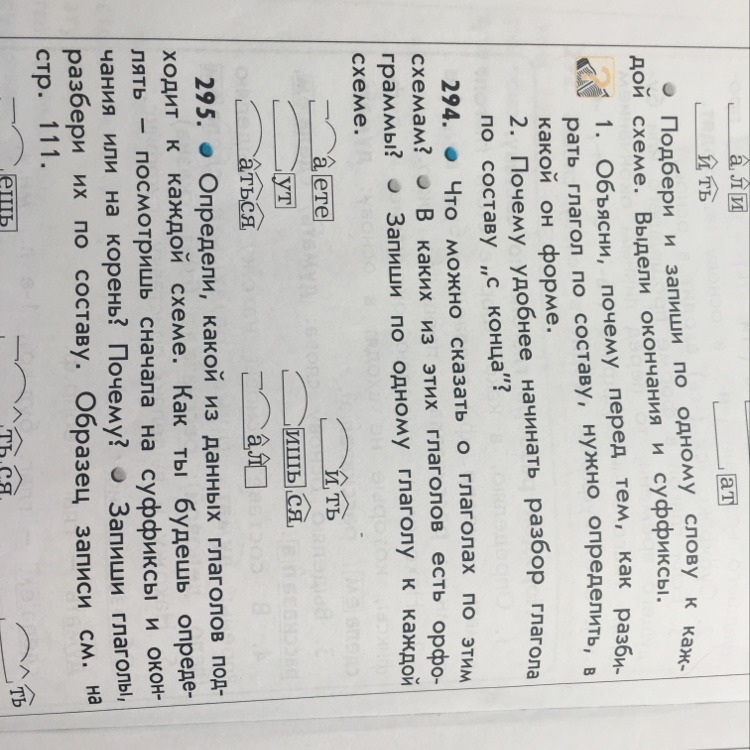 али
ить
ат
Подбери и запиши по одному слову к каж-
дой схеме. Выдели окончания и суффиксы.
? 1. Объясни, почему перед тем, как разби-
рать глагол по составу, нужно определить, в
какой он форме.
2. Почему удобнее начинать разбор глагола
по составу „с конца"?
294. Что можно сказать о глаголах по этим
схемам? В каких из этих глаголов есть орфо-
граммы? Запиши по одному глаголу к каждой
схеме.
аете ить
ут ишься
аться ал
295. Определи, какой из данных глаголов под-
ходит к каждой схеме. Как ты будешь опреде-
лять – посмотришь сначала на суффиксы и окон-
чания или на корень? Почему? Запиши глаголы,
разбери их по составу. Образец записи см. на
стр. 111.
ешь ться ть